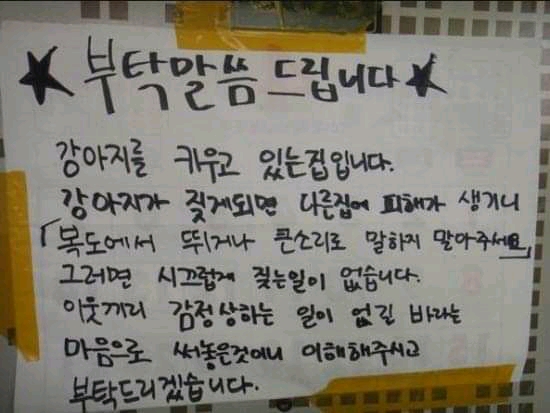 ★ 부탁말씀 드립니다 ★
강아지를 키우고 있는집입니다.
강아지가 짖게되면 다른집에 피해가 생기니
「복도에서 뛰거나 큰소리로 말하지 말아주세요」
그러면 시끄럽게 짖는일이 없습니다.
이웃끼리 감정상하는 일이 없길 바라는
마음으로 써놓은것이니 이해해주시고
부탁드리겠습니다.